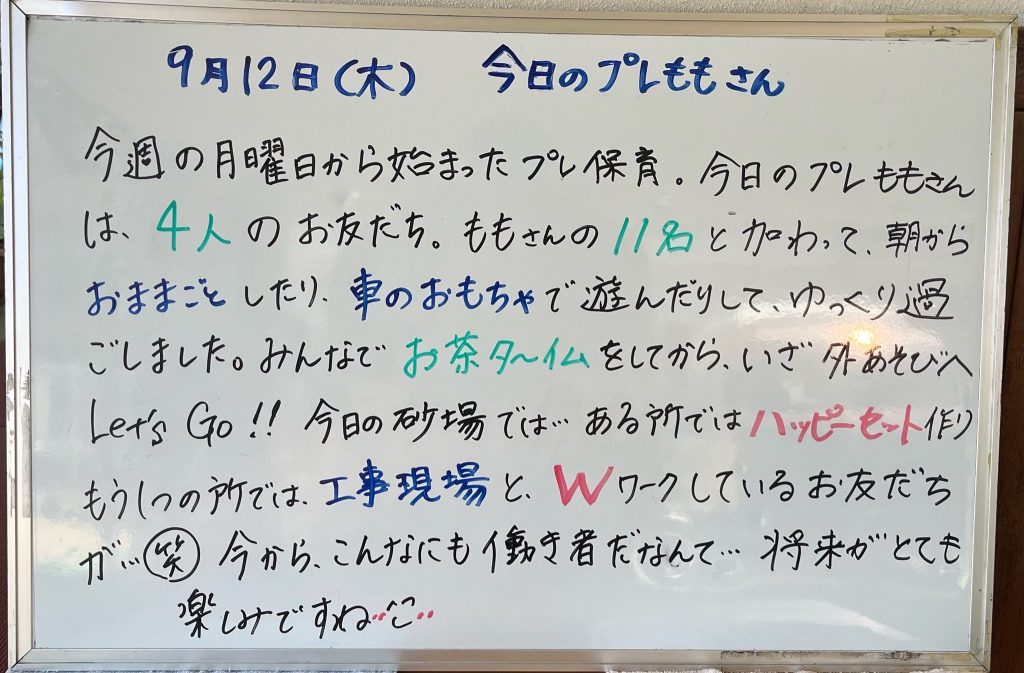 9月12日(木) 今日のプレももさん
今週の月曜日から始まったプレ保育。今日のプレももさん
は、4人のお友だち。ももさんの11名と加わって、朝から
おままごとしたり、車のおもちゃで遊んだりして、ゆっくり過
ごしました。みんなでお茶タ〜イムをしてから、いざ外あそびへ
Let's Go!! 今日の砂場では… ある所ではハッピーセット作り
もう1つの所では、工事現場と、Wワークしているお友だち
が…笑 今から、こんなにも働き者だなんて… 将来がとても
楽しみですね